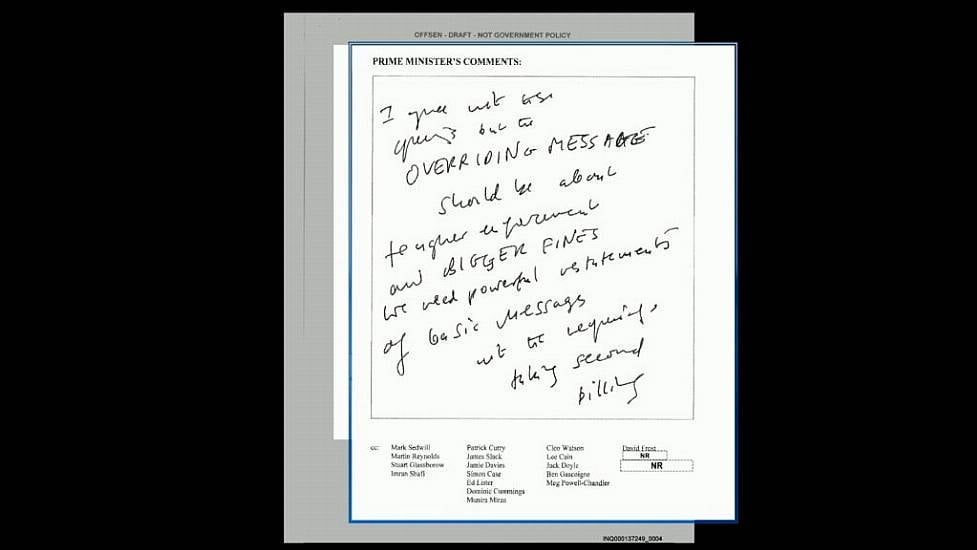 OFFSEN - DRAFT - NOT GOVERNMENT POLICY
PRIME MINISTER'S COMMENTS:
I agree with these
openings but the
OVERRIDING MESSAGE
should be about
tougher enforcement
and BIGGER FINES
We need powerful restatements
of basic messages
with the reopenings
taking second
billing
cc: Mark Sedwill Patrick Curry Cleo Watson David Frost
Martin Reynolds James Slack Lee Cain NR
Stuart Glassborow Jamie Davies Jack Doyle NR
Imran Shafi Simon Case Ben Gascoigne
Ed Lister Meg Powell-Chandler
Dominic Cummings
Munira Mirza
INQ000137249_0004